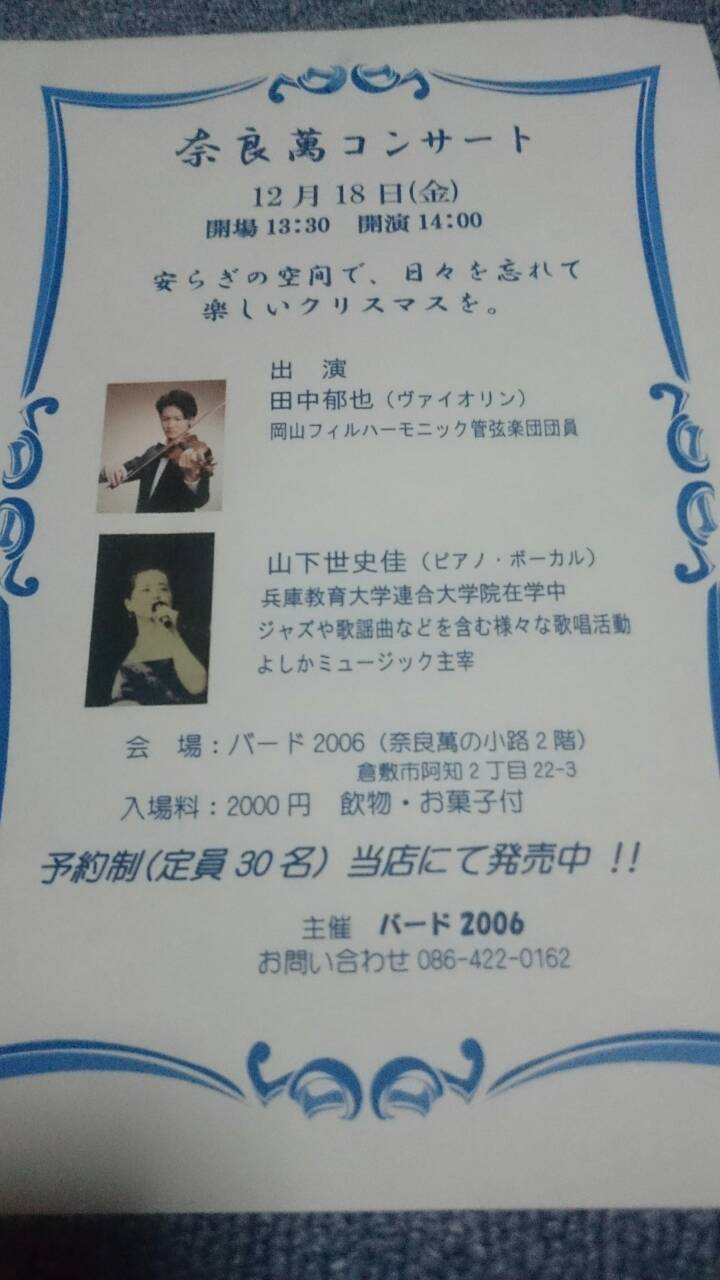 奈良萬コンサート
12月18日(金)
開場13:30　開演14:00
安らぎの空間で、日々を忘れて
楽しいクリスマスを。
出　演
田中郁也（ヴァイオリン）
岡山フィルハーモニック管弦楽団団員
山下世史佳（ピアノ・ボーカル）
兵庫教育大学連合大学院在学中
ジャズや歌謡曲などを含む様々な歌唱活動
よしかミュージック主宰
会　場：バード2006（奈良萬の小路2階）
倉敷市阿知2丁目22-3
入場料：2000円　飲物・お菓子付
予約制(定員30名）当店にて発売中 !!
主催　バード2006
お問い合わせ086-422-0162